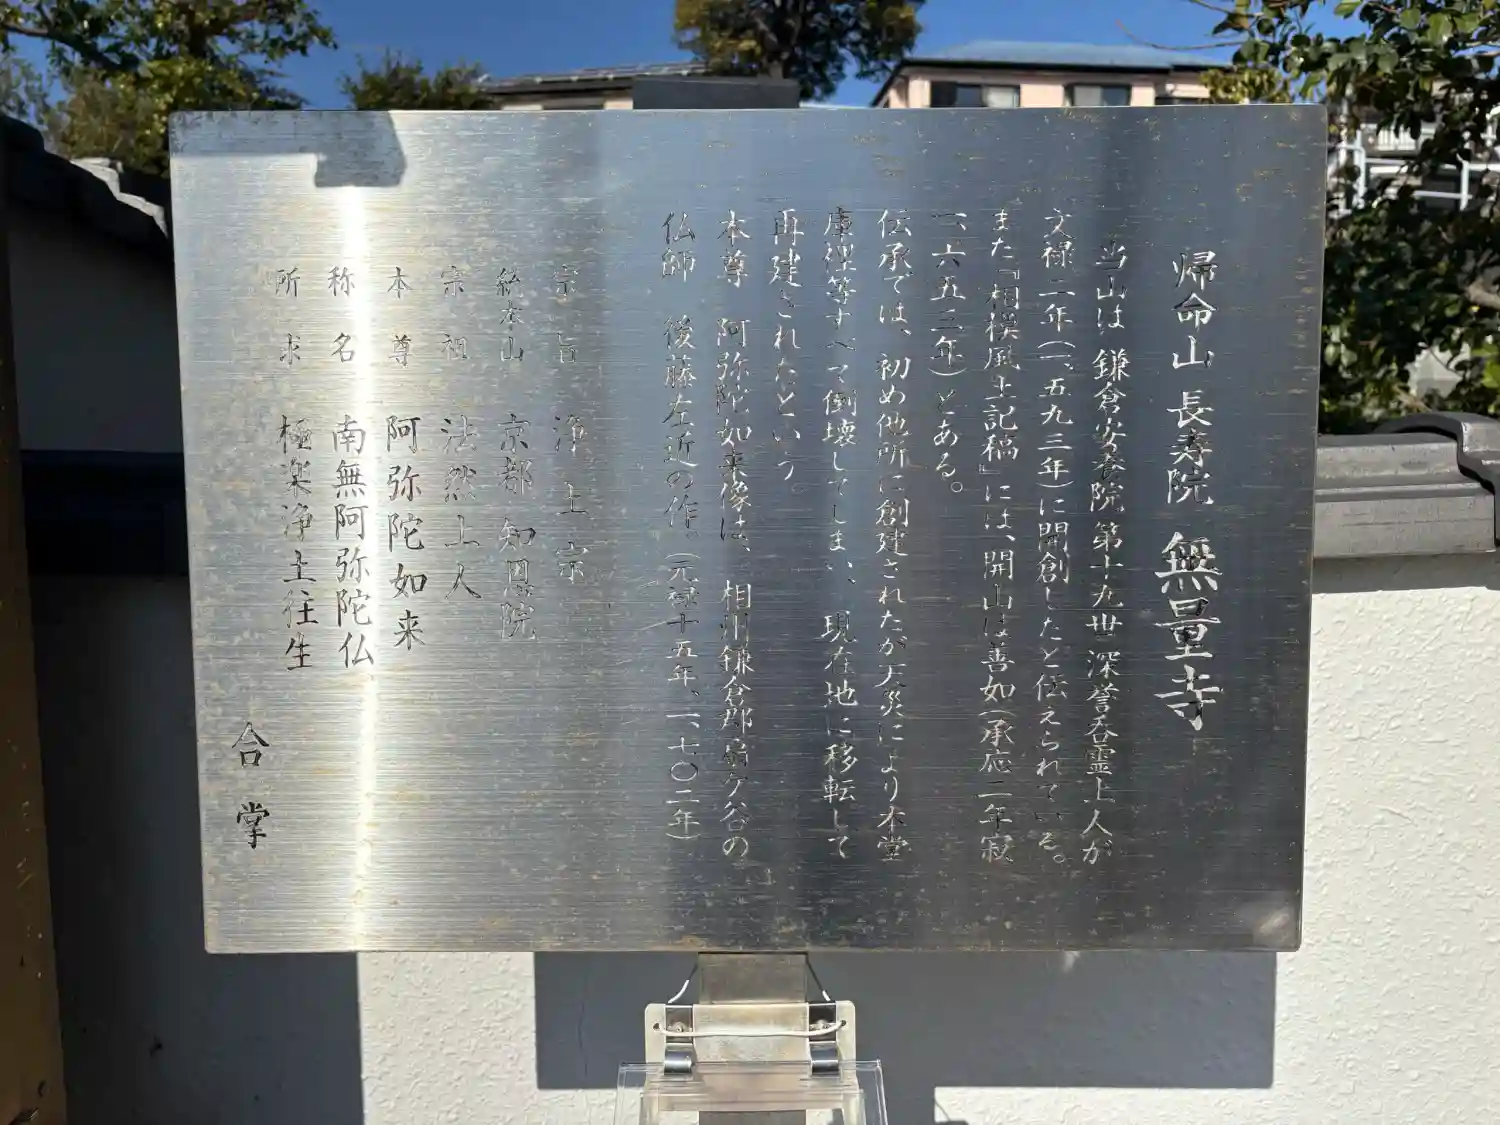 帰命山 長寿院 無量寺
当山は 鎌倉安養院第十九世 深誉呑霊上人が
文禄二年(一、五九三年)に開創したと伝えられている。
また『相模風土記稿』には、開山は善如(承応二年寂
一、六五三年)とある。
伝承では、初め他所に創建されたが天災により本堂
庫裡等すべて倒壊してしまい、現在地に移転して
再建されたという。
本尊 阿弥陀如来像は、相州鎌倉郡扇ケ谷の
仏師 後藤左近の作。(元禄十五年、一、七〇二年)
宗旨 浄土宗
総本山 京都 知恩院
宗祖 法然上人
本尊 阿弥陀如来
称名 南無阿弥陀仏
所求 極楽浄土往生
合掌